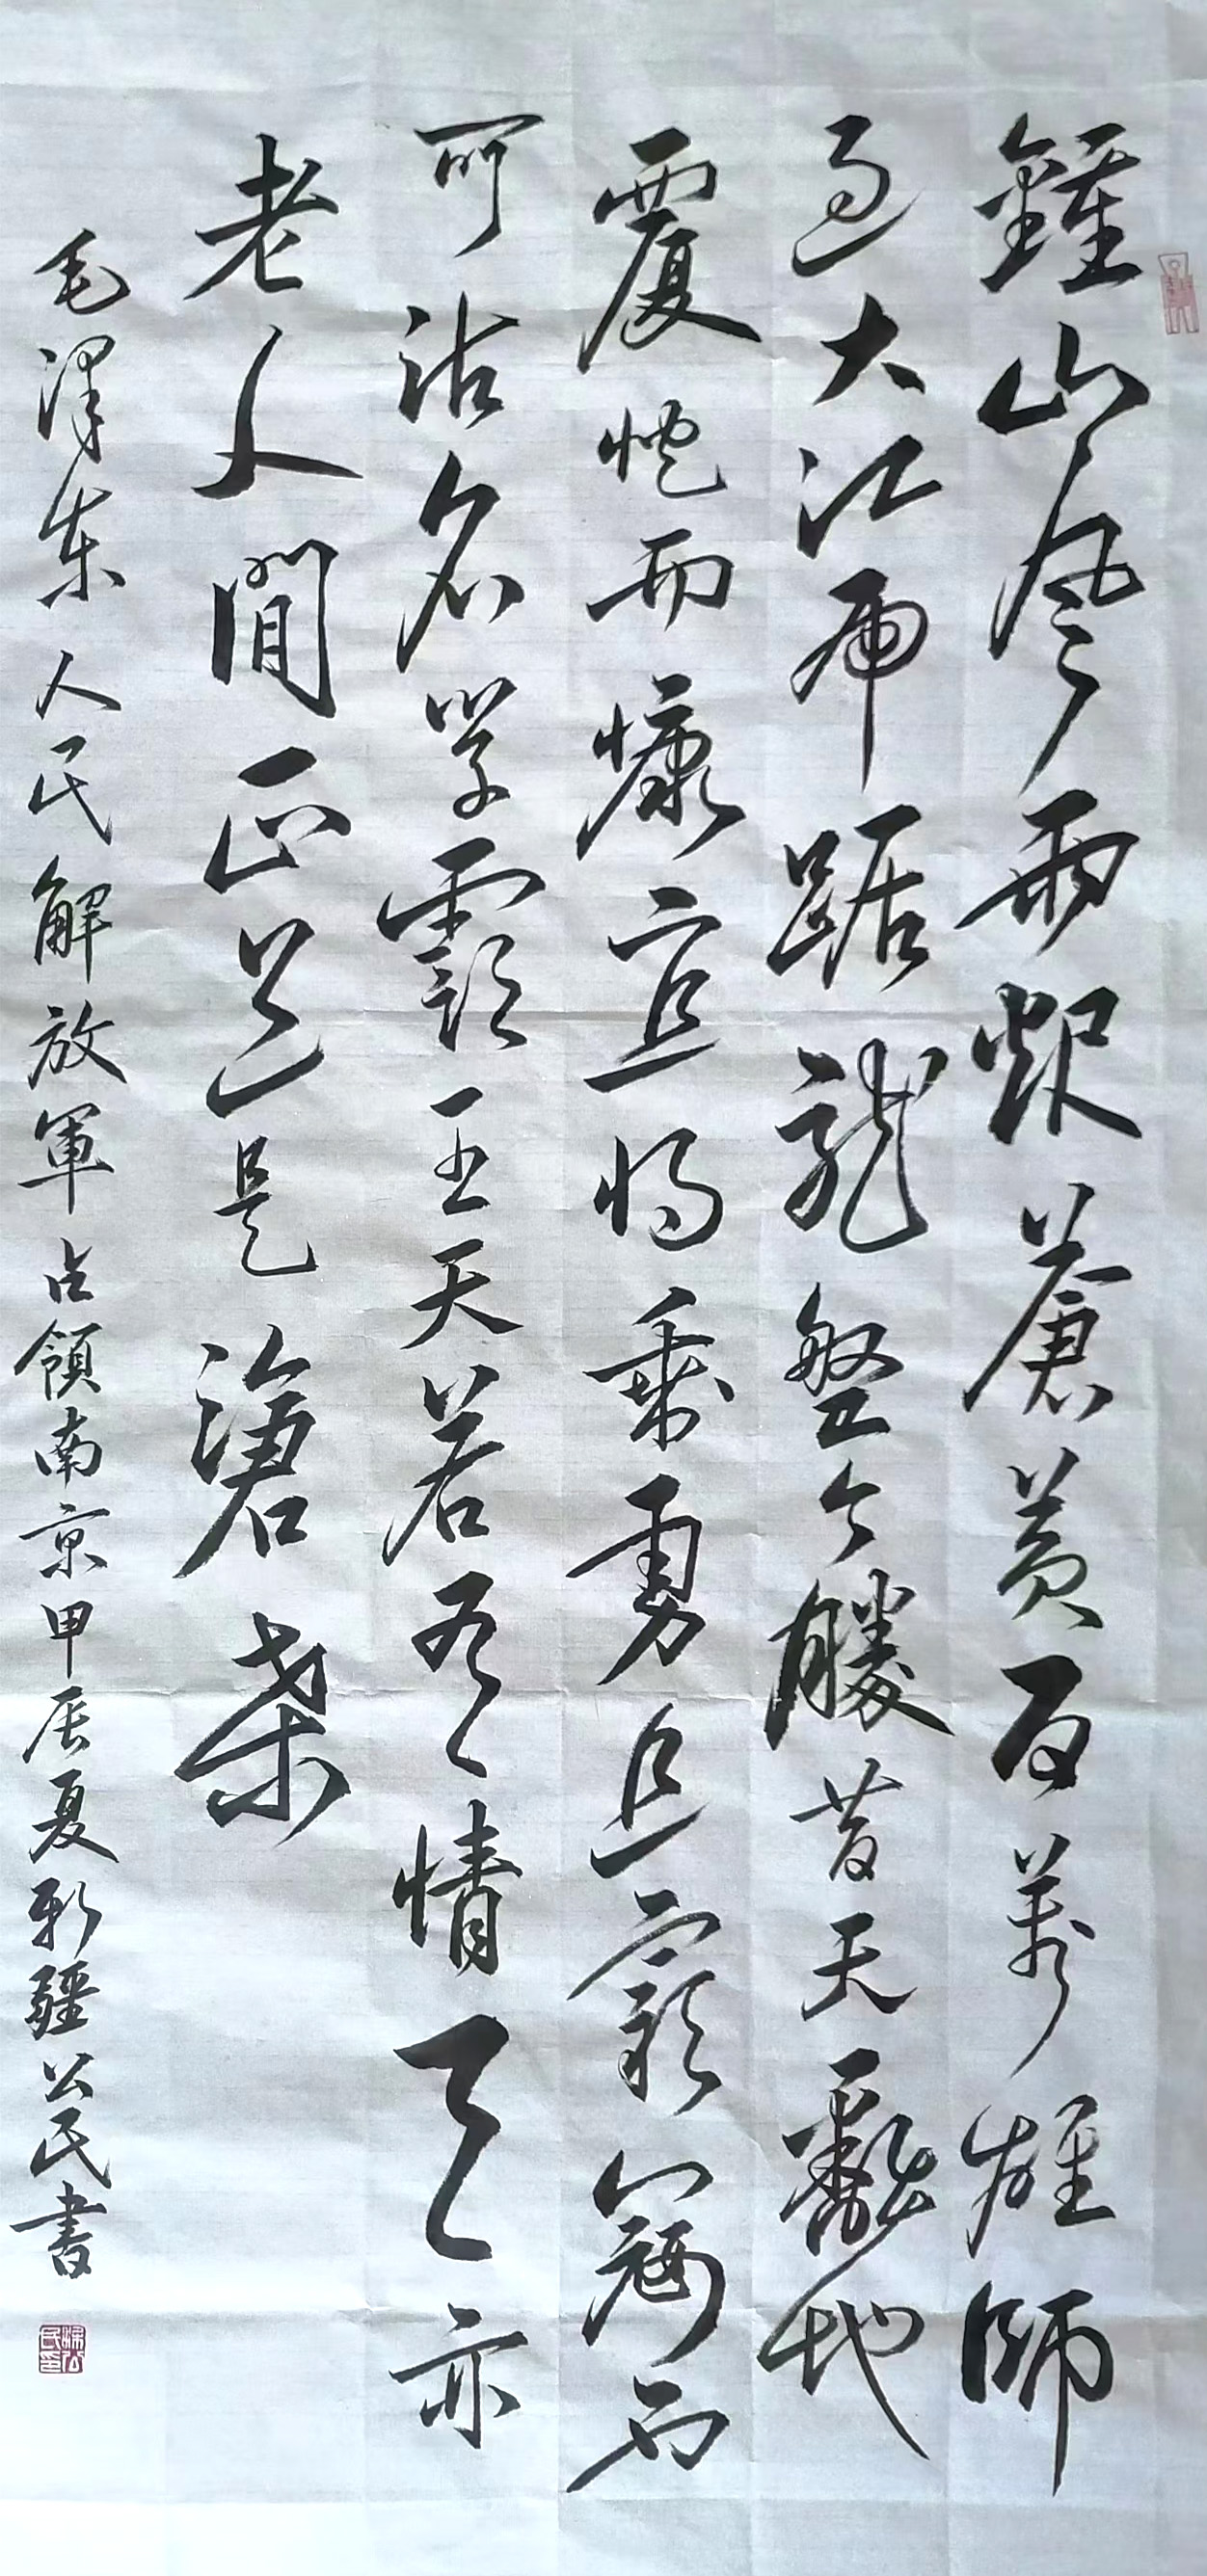 鍾山風雨起蒼黃百萬雄師
過大江虎踞龍盤今勝昔天翻地
覆慨而慷宜將乘勇追窮寇不
可沽名學霸王天若有情天亦
老人間正道是滄桑
毛澤東人民解放軍占領南京甲辰夏新疆公民書